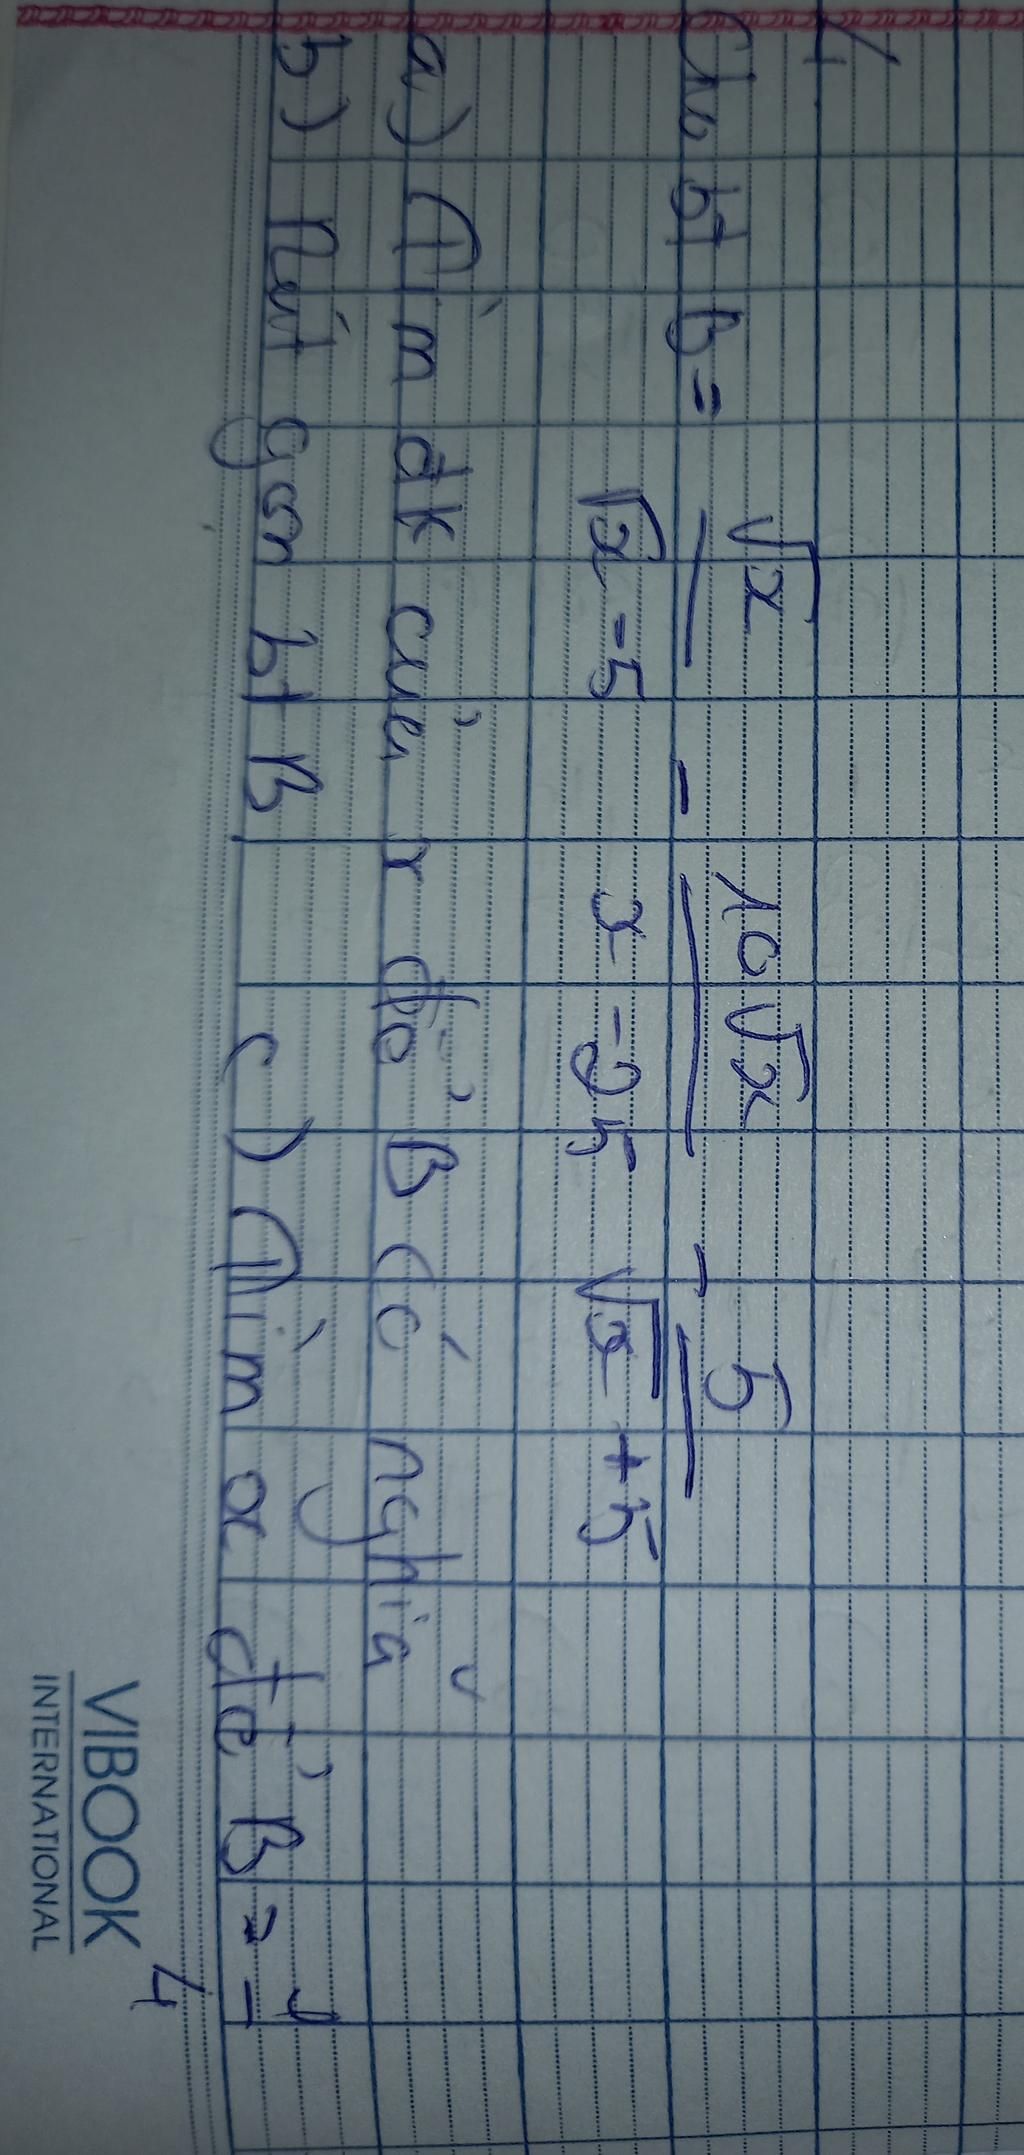 4
Cho bt B = √x / (√x - 5) - 10√x / (x - 25) - 5 / (√x + 5)
a) Tìm đk của x để B có nghĩa
b) Rút gọn bt B c) Tìm x để B = 1/4
VIBOOK
INTERNATIONAL